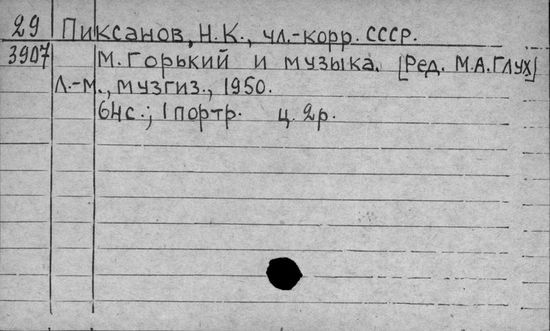 29 Пиксанов, Н.К., чл.-корр. СССР.
3907 М. Горький и музыка. [Ред. М.А.Глух]
Л.-М., музгиз., 1950.
64с.; 1 портр. ц. 2р.